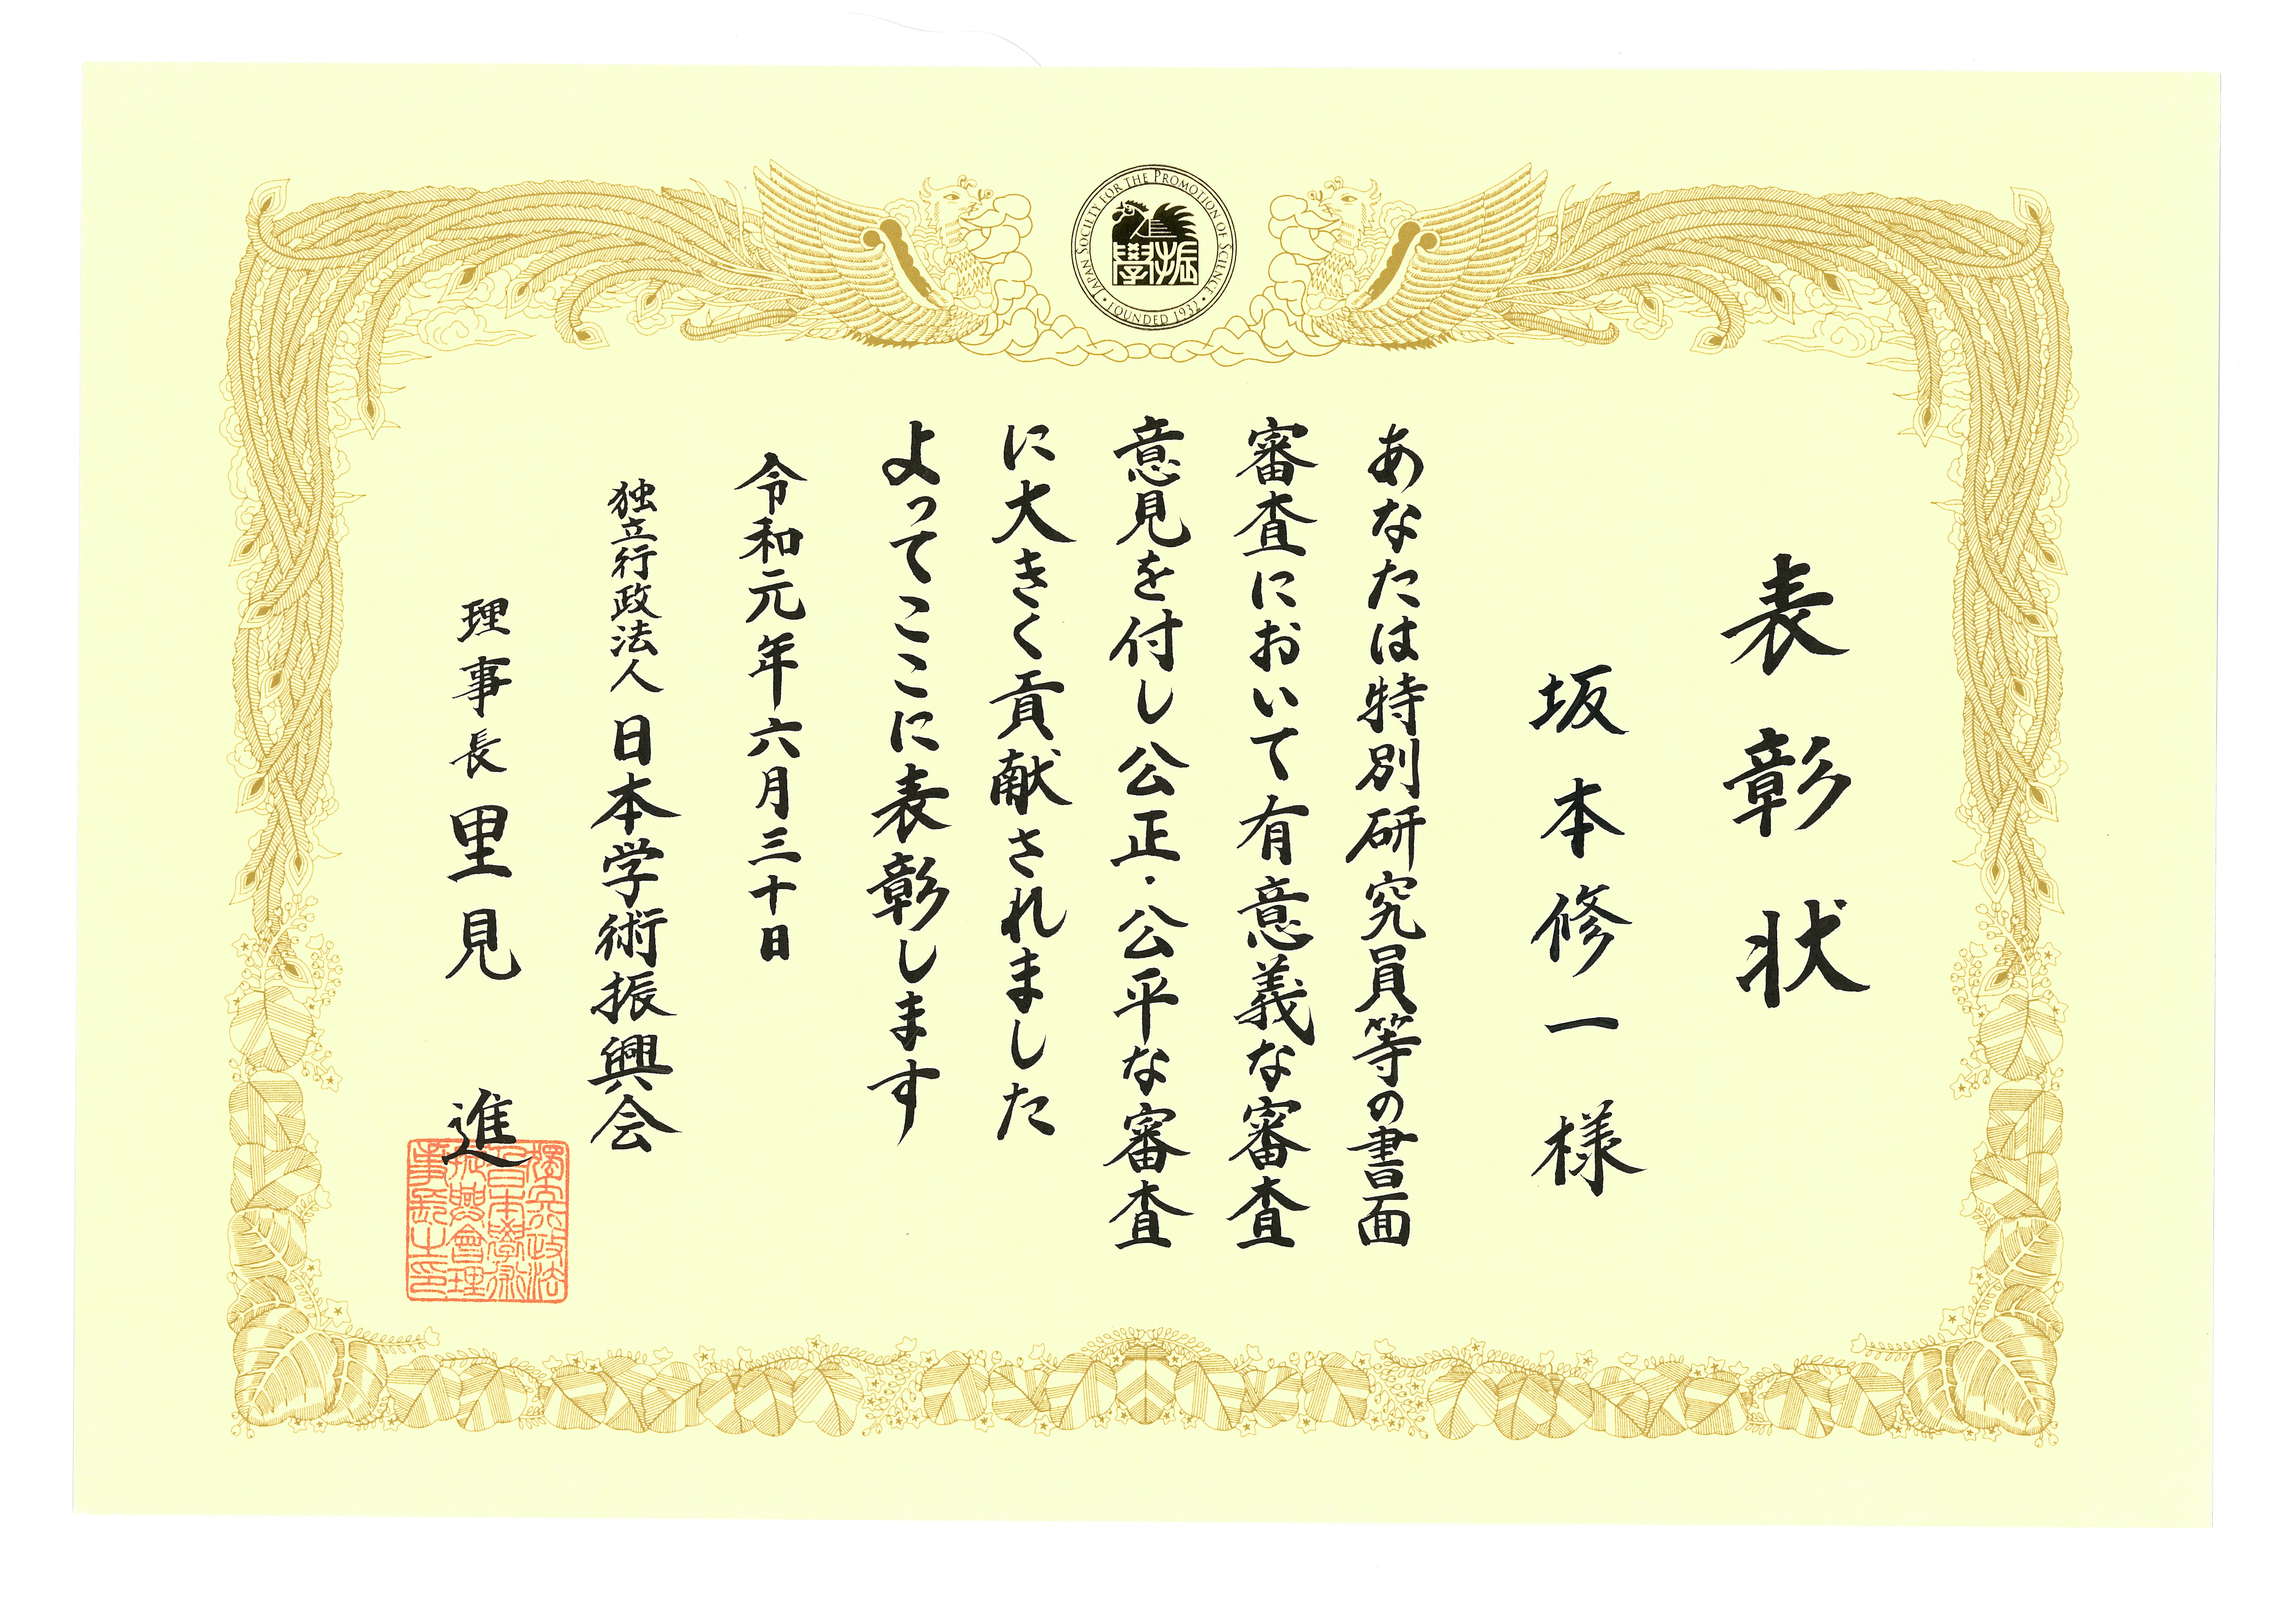 JAPAN SOCIETY FOR THE PROMOTION OF SCIENCE
FOUNDED 1932
學振
表彰状
坂本修一様
あなたは特別研究員等の書面
審査において有意義な審査
意見を付し公正・公平な審査
に大きく貢献されました
よってここに表彰します
令和元年六月三十日
独立行政法人日本学術振興会
理事長里見 進